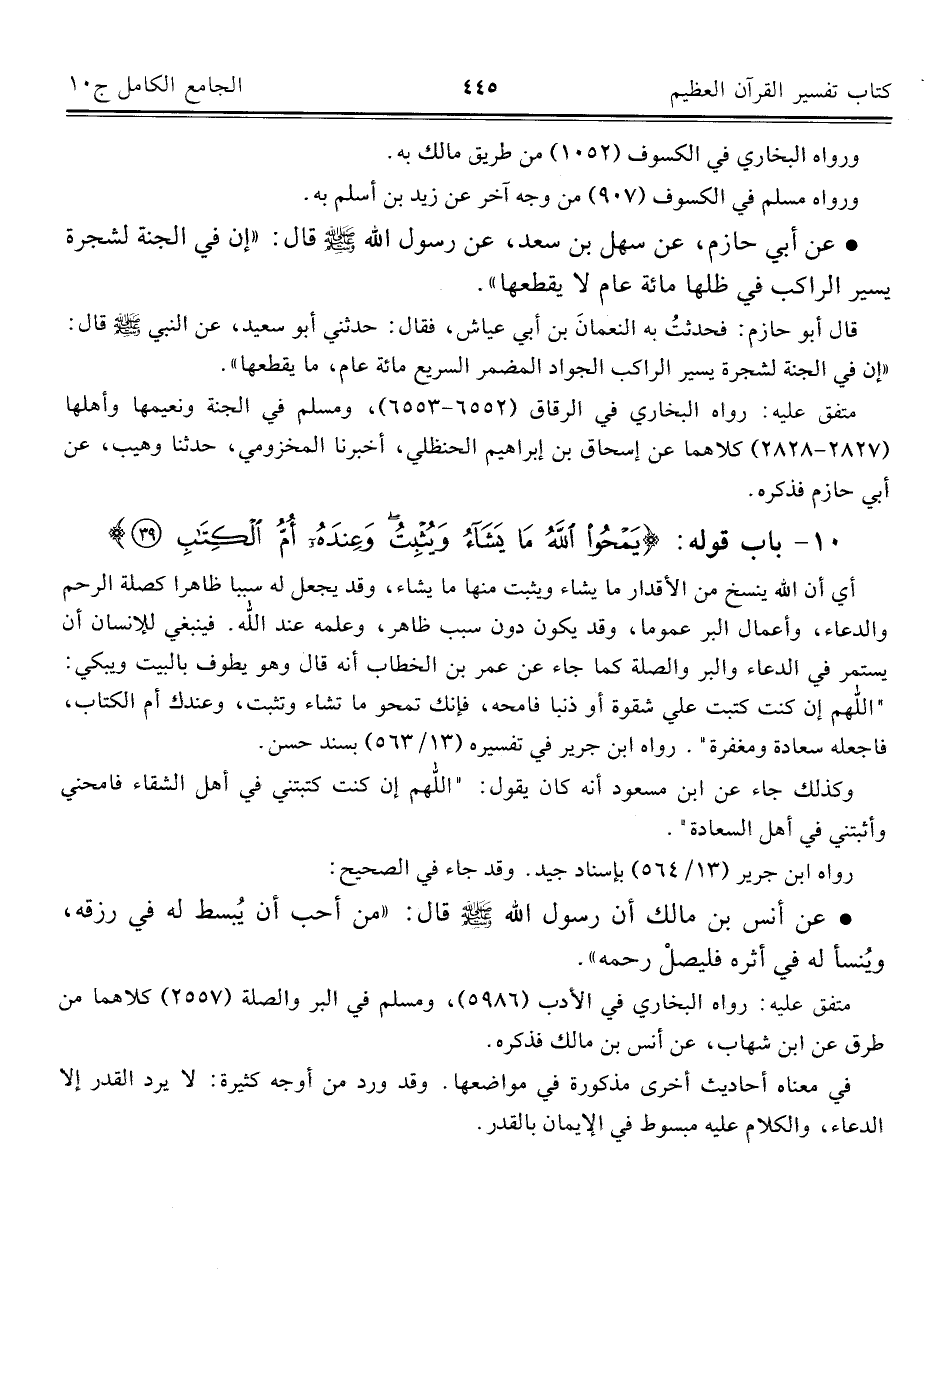 كتاب تفسير القرآن العظيم ٤٤٥ الجامع الكامل ج١٠
ورواه البخاري في الكسوف (١٠٥٢) من طريق مالك به.
ورواه مسلم في الكسوف (٩٠٧) من وجه آخر عن زيد بن أسلم به.
• عن أبي حازم، عن سهل بن سعد، عن رسول الله ﷺ قال: «إن في الجنة لشجرة
يسير الراكب في ظلها مائة عام لا يقطعها».
قال أبو حازم: فحدثتُ به النعمانَ بن أبي عياش، فقال: حدثني أبو سعيد، عن النبي ﷺ قال:
«إن في الجنة لشجرة يسير الراكب الجواد المضمر السريع مائة عام، ما يقطعها».
متفق عليه: رواه البخاري في الرقاق (٦٥٥٢-٦٥٥٣)، ومسلم في الجنة ونعيمها وأهلها
(٢٨٢٧-٢٨٢٨) كلاهما عن إسحاق بن إبراهيم الحنظلي، أخبرنا المخزومي، حدثنا وهيب، عن
أبي حازم فذكره.
١٠- باب قوله: ﴿يَمْحُوا۟ ٱللَّهُ مَا يَشَآءُ وَيُثْبِتُ ۖ وَعِندَهُۥٓ أُمُّ ٱلْكِتَٰبِ ٣٩﴾
أي أن الله ينسخ من الأقدار ما يشاء ويثبت منها ما يشاء، وقد يجعل له سببا ظاهرا كصلة الرحم
والدعاء، وأعمال البر عموما، وقد يكون دون سبب ظاهر، وعلمه عند الله. فينبغي للإنسان أن
يستمر في الدعاء والبر والصلة كما جاء عن عمر بن الخطاب أنه قال وهو يطوف بالبيت ويبكي:
"اللهم إن كنت كتبت علي شقوة أو ذنبا فامحه، فإنك تمحو ما تشاء وتثبت، وعندك أم الكتاب،
فاجعله سعادة ومغفرة". رواه ابن جرير في تفسيره (١٣/ ٥٦٣) بسند حسن.
وكذلك جاء عن ابن مسعود أنه كان يقول: "اللهم إن كنت كتبتني في أهل الشقاء فامحني
وأثبتني في أهل السعادة".
رواه ابن جرير (١٣/ ٥٦٤) بإسناد جيد. وقد جاء في الصحيح:
• عن أنس بن مالك أن رسول الله ﷺ قال: «من أحب أن يُبسط له في رزقه،
ويُنسأ له في أثره فليصلْ رحمه».
متفق عليه: رواه البخاري في الأدب (٥٩٨٦)، ومسلم في البر والصلة (٢٥٥٧) كلاهما من
طرق عن ابن شهاب، عن أنس بن مالك فذكره.
في معناه أحاديث أخرى مذكورة في مواضعها. وقد ورد من أوجه كثيرة: لا يرد القدر إلا
الدعاء، والكلام عليه مبسوط في الإيمان بالقدر.